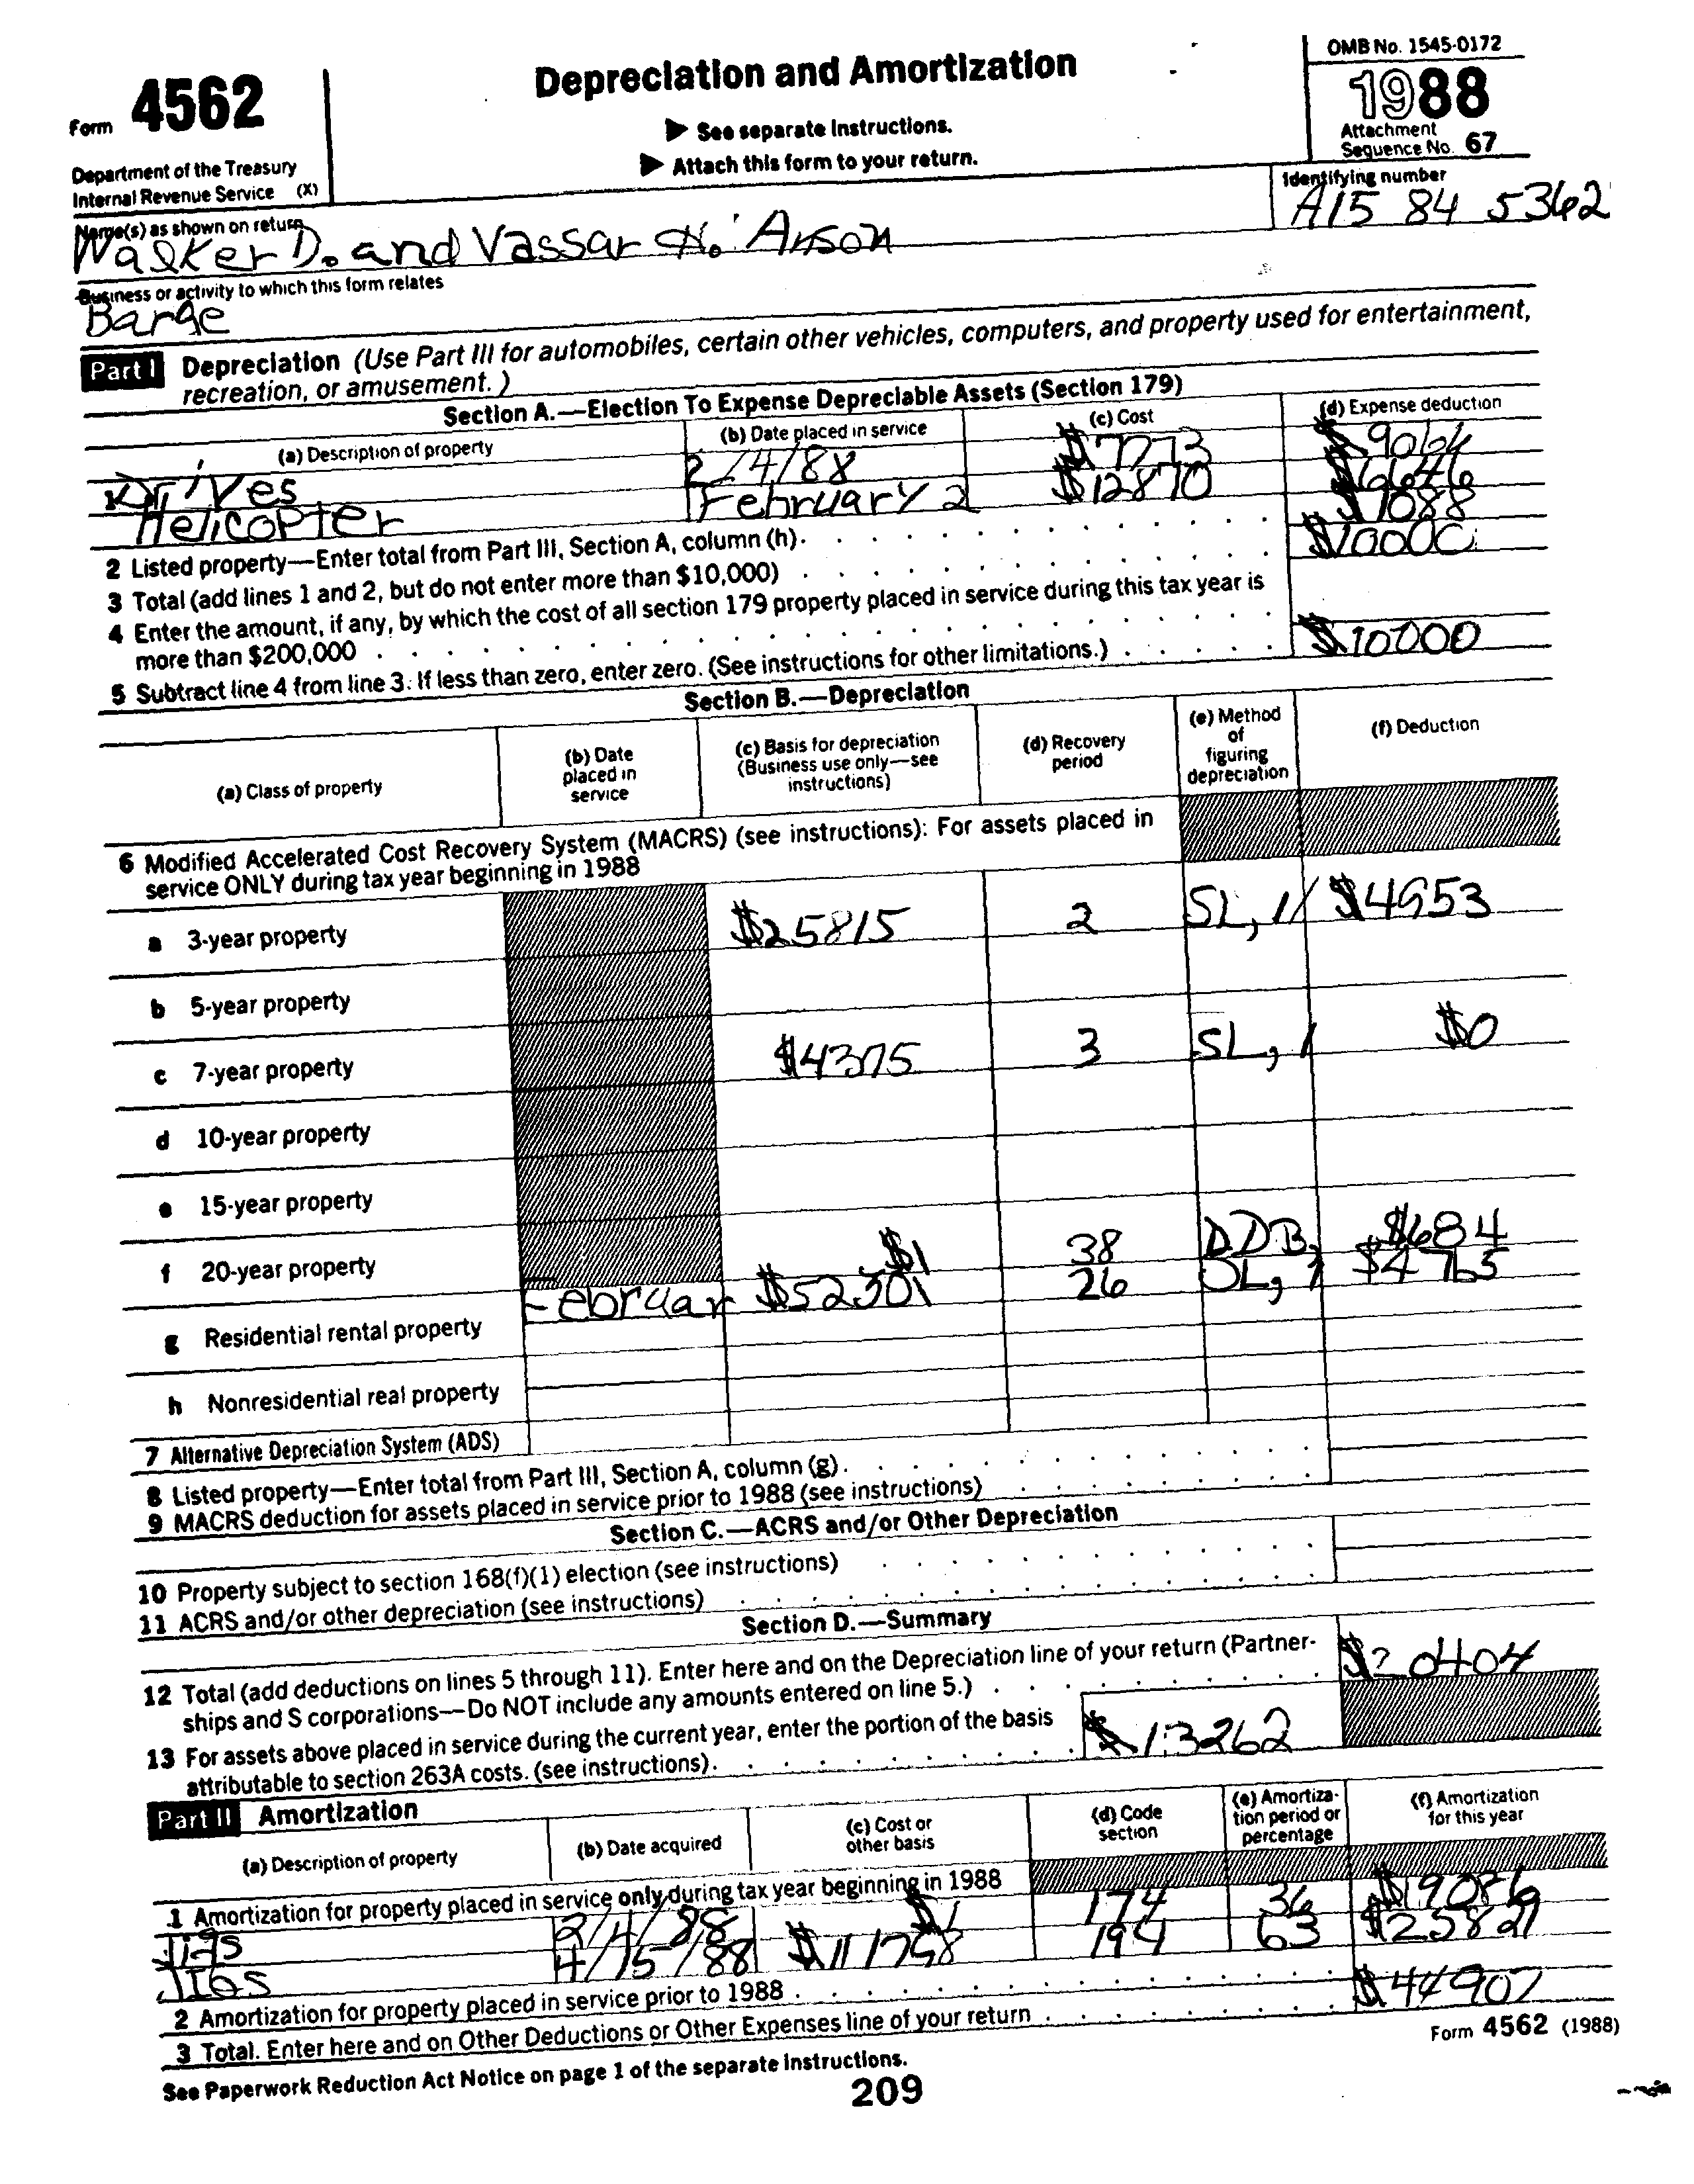 Form 4562
Department of the Treasury
Internal Revenue Service (X)
Depreciation and Amortization
▶ See separate Instructions.
▶ Attach this form to your return.
OMB No. 1545-0172
1988
Attachment
Sequence No. 67
Name(s) as shown on return
Walker D. and Vassar H. Anson
Identifying number
A15 84 5362
Business or activity to which this form relates
Barge
Part I Depreciation (Use Part III for automobiles, certain other vehicles, computers, and property used for entertainment,
recreation, or amusement.)
Section A.—Election To Expense Depreciable Assets (Section 179)
(a) Description of property (b) Date placed in service (c) Cost (d) Expense deduction
Drives 2/4/88 $7773 $9064
Helicopter February 2 $12870 $6646
2 Listed property—Enter total from Part III, Section A, column (h) $1088
3 Total (add lines 1 and 2, but do not enter more than $10,000) $10000
4 Enter the amount, if any, by which the cost of all section 179 property placed in service during this tax year is
more than $200,000
5 Subtract line 4 from line 3. If less than zero, enter zero. (See instructions for other limitations.) $10000
Section B.—Depreciation
(a) Class of property (b) Date placed in service (c) Basis for depreciation (Business use only—see instructions) (d) Recovery period (e) Method of figuring depreciation (f) Deduction
6 Modified Accelerated Cost Recovery System (MACRS) (see instructions): For assets placed in
service ONLY during tax year beginning in 1988
a 3-year property $25815 2 SL, 1/ $4953
b 5-year property
c 7-year property $4375 3 SL, 1 $0
d 10-year property
e 15-year property
f 20-year property $1 38 DDB, $684
g Residential rental property Februar $52301 26 SL, 1 $4765
h Nonresidential real property
7 Alternative Depreciation System (ADS)
8 Listed property—Enter total from Part III, Section A, column (g)
9 MACRS deduction for assets placed in service prior to 1988 (see instructions)
Section C.—ACRS and/or Other Depreciation
10 Property subject to section 168(f)(1) election (see instructions)
11 ACRS and/or other depreciation (see instructions)
Section D.—Summary
12 Total (add deductions on lines 5 through 11). Enter here and on the Depreciation line of your return (Partner-
ships and S corporations—Do NOT include any amounts entered on line 5.) $20404
13 For assets above placed in service during the current year, enter the portion of the basis
attributable to section 263A costs. (see instructions) $13262
Part II Amortization
(a) Description of property (b) Date acquired (c) Cost or other basis (d) Code section (e) Amortization period or percentage (f) Amortization for this year
1 Amortization for property placed in service only during tax year beginning in 1988
Jigs 2/4/88 $1 174 36 $19086
JIGS 4/15/88 $111758 194 63 $25821
2 Amortization for property placed in service prior to 1988
3 Total. Enter here and on Other Deductions or Other Expenses line of your return $44907
See Paperwork Reduction Act Notice on page 1 of the separate instructions.
Form 4562 (1988)
209